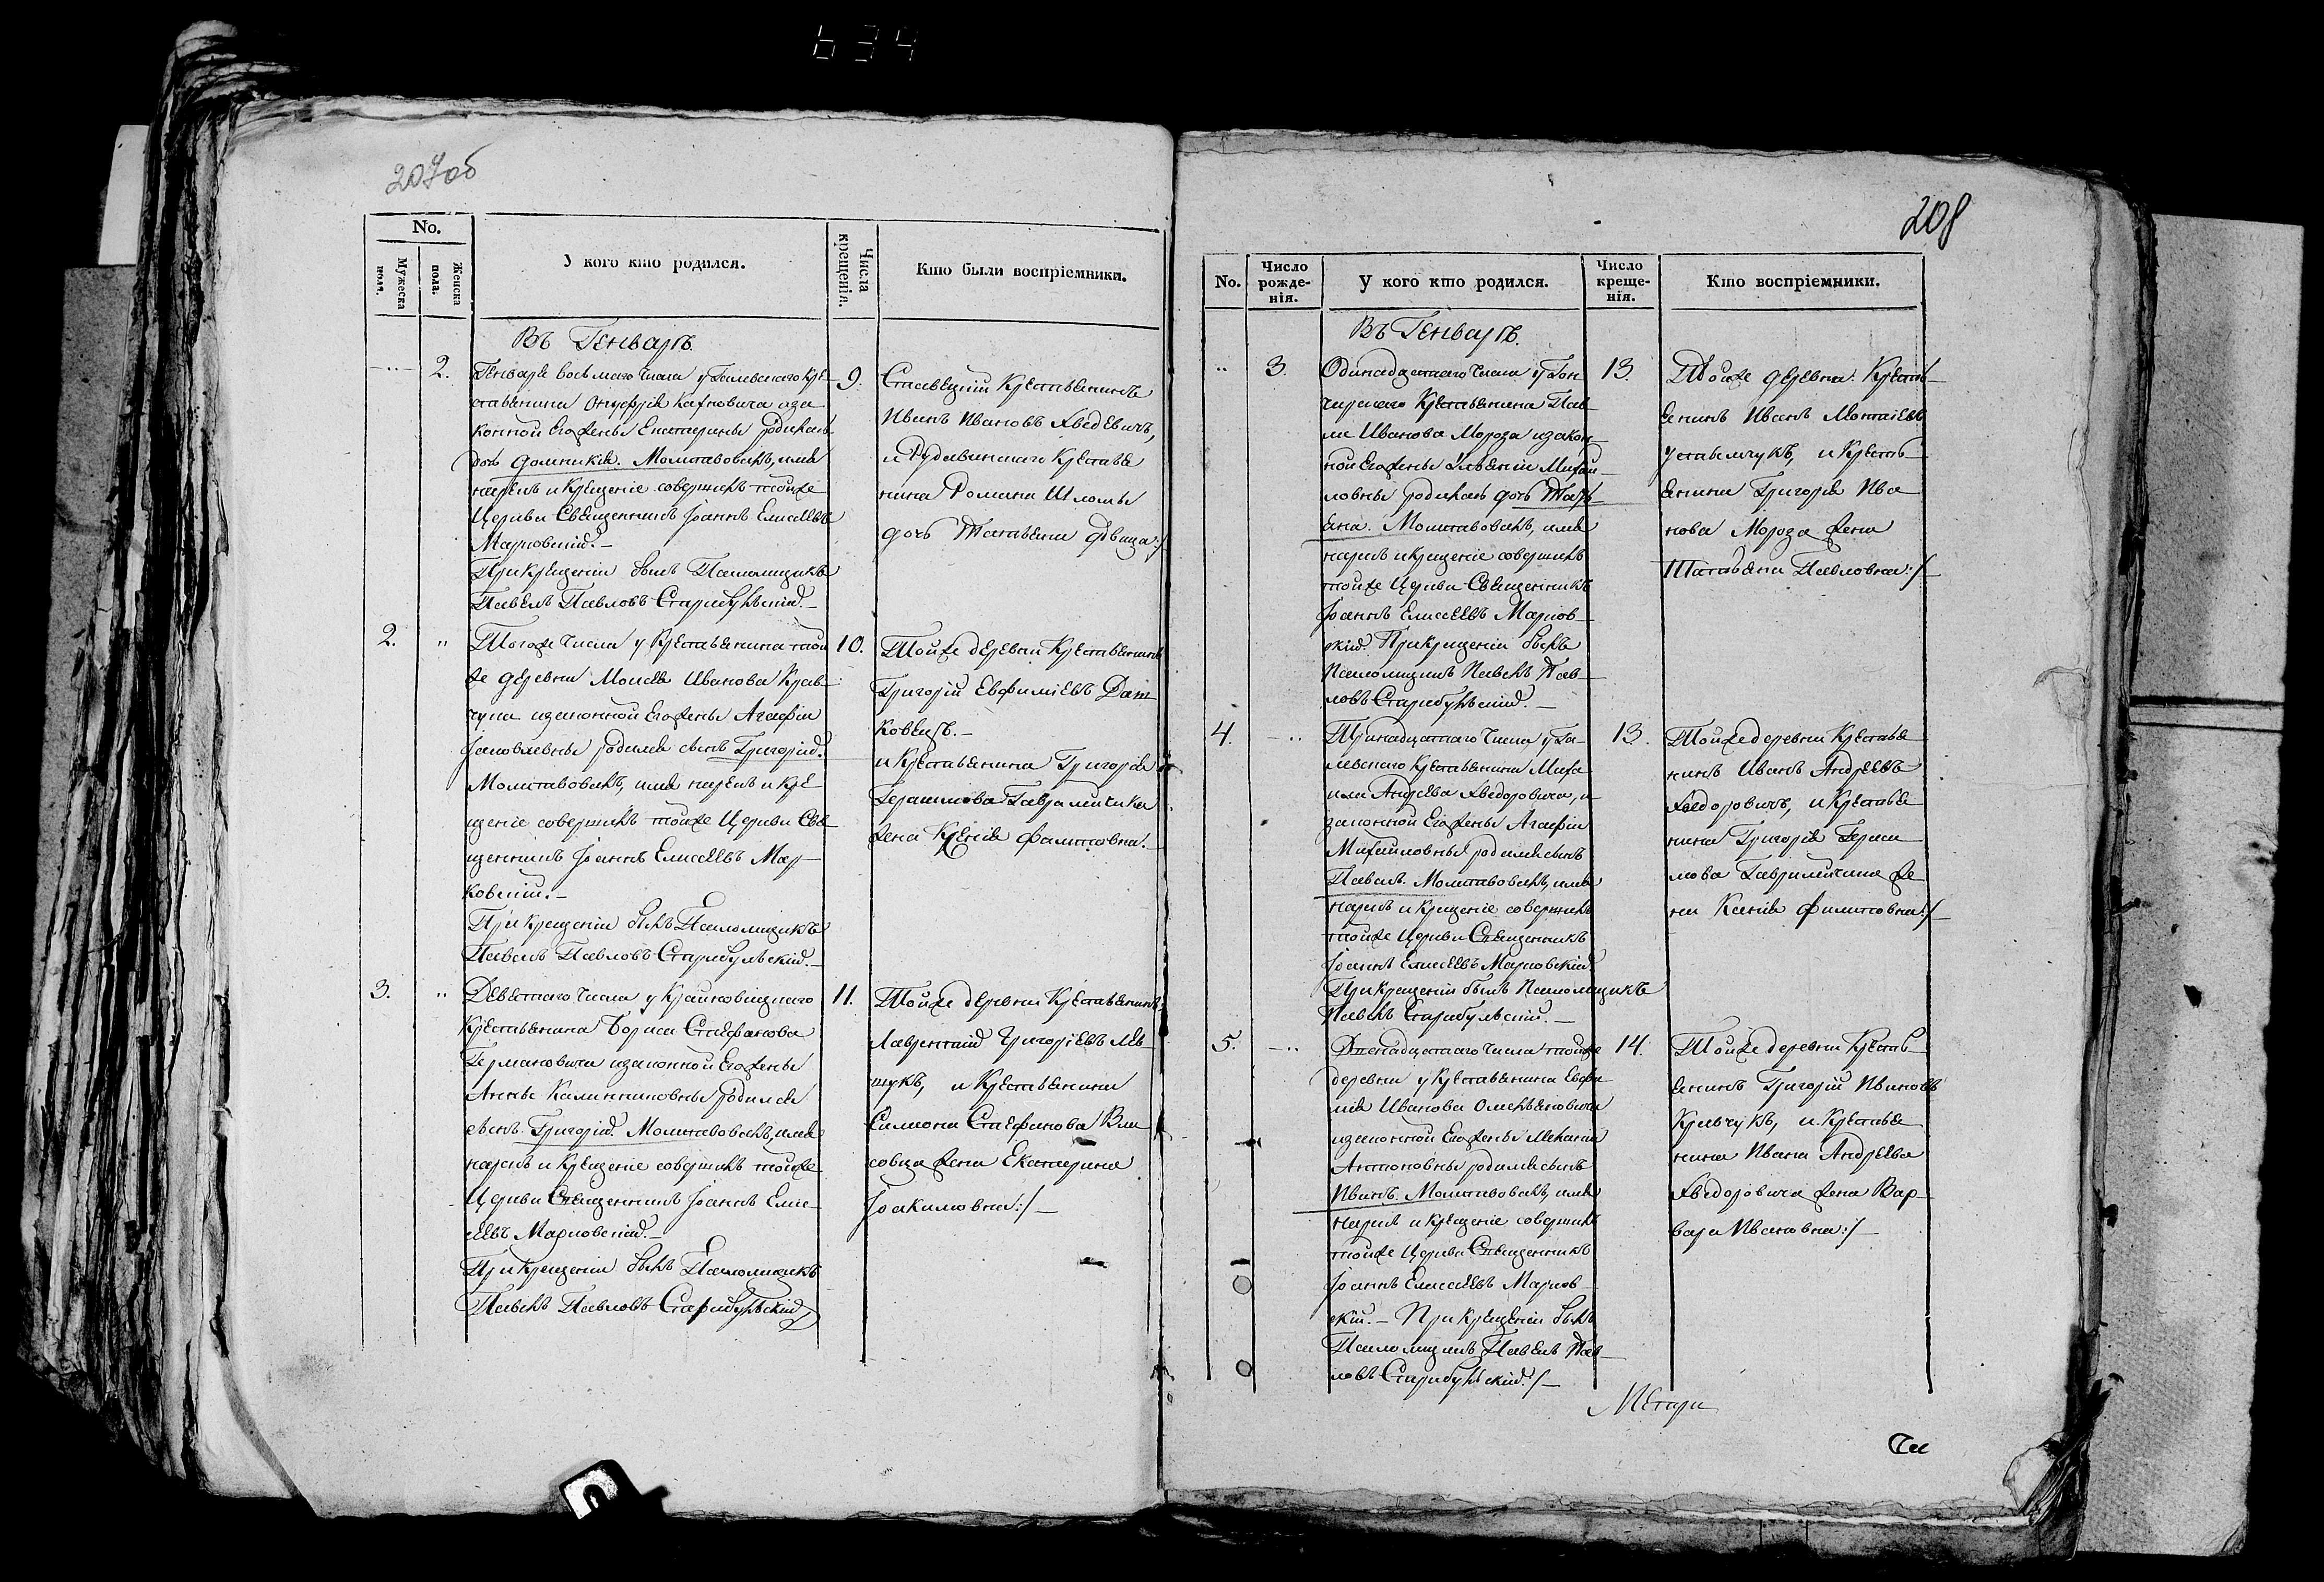 634
207об
No.
Мужеска пола.
Женска пола.
У кого кто родился.
Числа крещенія.
Кто были воспріемники.
Въ Генварѣ.
2.
Генваря восьмаго числа у Галевскаго Кре-
стьянина Онуфрія изза
конной Его жены Екатерины родилась
дочь Домникія. Молитвовалъ, имя
нарекъ и Крещеніе совершилъ тойже
Церкви Священникъ Іоаннъ Елисеевъ
Марковскій.-
При Крещеніи былъ Псаломщикъ
Павелъ Павловъ Старибульскій.-
9.
Крестьянинъ
Иванъ Ивановъ Хведевичъ,
и Крестья
нина Романа Шломы
дочь Татьяна Дѣвица:/
2. "
Тогоже числа у Крестьянина той
же деревни Моисея Иванова Крав-
чука изаконной Его жены Агафіи
Яковлевны родился сынъ Григорій.
Молитвовалъ, имя нарекъ и Кре
щеніе совершилъ тойже Церкви Свя
щенникъ Іоаннъ Елисеевъ Мар-
ковскій.-
При крещеніи былъ Псаломщикъ
Павелъ Павловъ Старибульскій.-
10.
Тойже деревни Крестьянинъ
Григорій Евфиміевъ Дат
ковецъ.-
и Крестьянина Григорія
Герасимова Гаврилчика
жена Ксенія Филиповна.-
3. "
Девятаго числа у Крайновицкаго
Крестьянина Бориса Стефанова
Германовича изаконной Его жены
Анны Калинниковны родился
сынъ Григорій. Молитвовалъ, имя
нарекъ и Крещеніе совершилъ тойже
Церкви Священникъ Іоаннъ Елис-
еевъ Марковскій.-
При крещеніи былъ Псаломщикъ
Павелъ Павловъ Старибульскій
11.
Тойже деревни Крестьянинъ
Лаврентій Григоріевъ Лев-
чукъ, и Крестьянина
Симона Стефанова Вла
совца жена Екатерина
Іоакимовна:/-
208
No.
Число рожде-нія.
У кого кто родился.
Число креще-нія.
Кто воспріемники.
Въ Генварѣ.
" 3.
Одинадцатаго числа у Гон
чарскаго Крестьянина Пав-
ла Иванова Мороза изакон-
ной Его жены Ульяніи Михай-
ловны родилась дочь Тать-
яна. Молитвовалъ, имя
нарекъ и крещеніе совершилъ
тойже Церкви Священникъ
Іоаннъ Елисеевъ Марков-
скій. При крещеніи былъ
Псаломщикъ Павелъ Пав-
ловъ Старибульскій.-
13.
Тойже деревни Кресть-
янинъ Иванъ
и Кресть-
янина Григорія Ива
нова Мороза жена
Татьяна Павловна:/-
4. -"
Тринадцатаго числа у Га-
левскаго Крестьянина Миха
ила Андреева Хведоровича, и
законной Его жены Агафіи
Михайловны родился сынъ
Павелъ. Молитвовалъ, имя
нарекъ и крещеніе совершилъ
тойже Церкви Священникъ
Іоаннъ Елисеевъ Марковскій.
При крещеніи былъ Псаломщикъ
Павелъ Старибульскій.-
13.
Тойже деревни Крестья
нинъ Иванъ Андреевъ
Хведоровичъ, и Крестья
нина Григорія Гераси
мова Гаврилчика же
на Ксенія Филиповна:/-
5. -"
Двенадцатаго числа тойже
деревни у Крестьянина Евфи
мія Иванова Омельяновича
изаконной Его жены Меланіи
Антоновны родился сынъ
Иванъ. Молитвовалъ, имя
нарекъ и крещеніе совершилъ
тойже Церкви Священникъ
Іоаннъ Елисеевъ Марков-
скій.- При крещеніи былъ
Псаломщикъ Павелъ Пав-
ловъ Старибульскій:/-
14.
Тойже деревни Кресть-
янинъ Григорій Ивановъ
Кравчукъ, и Крестья
нина Ивана Андреева
Хведоровича жена Вар-
вара Ивановна:/-